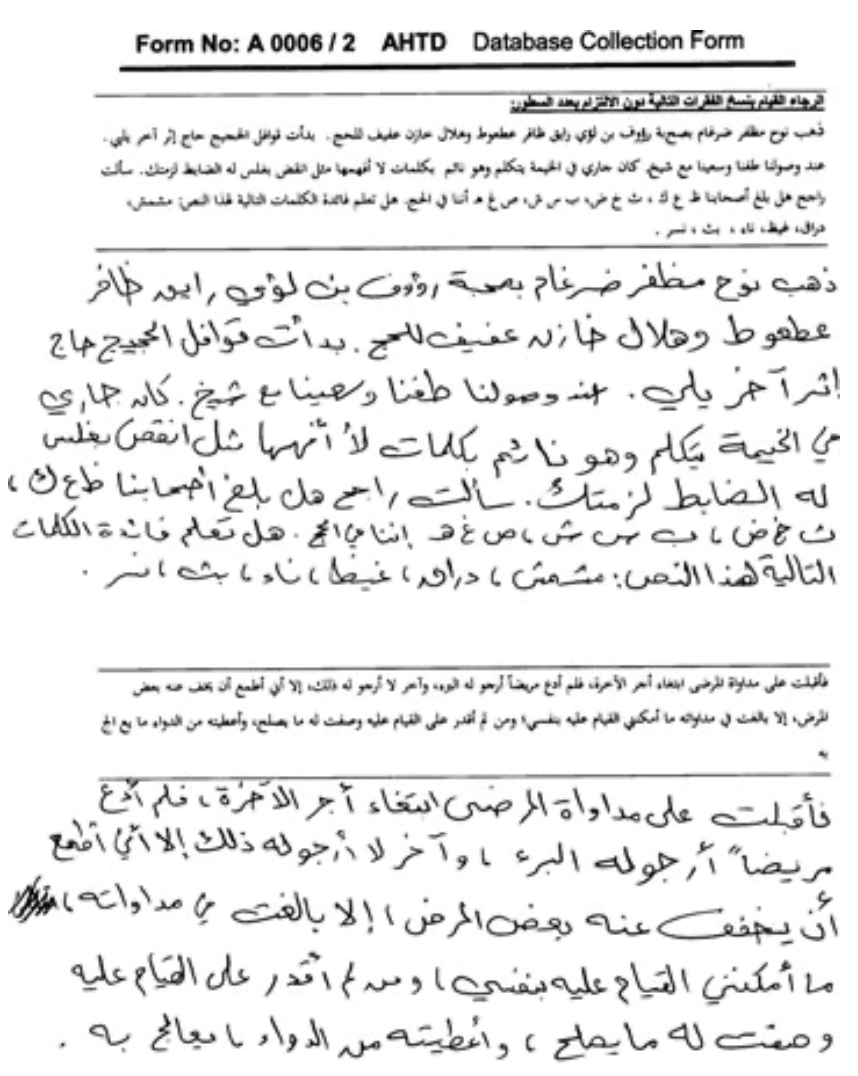 Form No: A 0006 / 2 AHTD Database Collection Form
الرجاء القيام بنسخ الفقرات التالية دون الالتزام بعدد السطور:
ذهب نوح مظفر ضرغام بصحبة رؤوف بن لؤي رايق ظافر عطعوط وهلال خازن عفيف للحج. بدأت قوافل الحجيج حاج إثر آخر يلي.
عند وصولنا طفنا وسعينا مع شيخ. كان جاري في الخيمة يتكلم وهو نائم بكلمات لا أفهمها مثل انقض بغلس له الضابط لزمتك. سألت
راجح هل بلغ أصحابنا ظ ع ك ، ث خ ض، ب س ش، ص غ هـ أننا في الحج. هل تعلم فائدة الكلمات التالية لهذا النص: مشمش،
دراق، غيظ، ناء ، بث ، نسر .
ذهب نوح مظفر ضرغام بصحبة رؤوف بن لؤي رايق ظافر
عطعوط وهلال خازن عفيف للحج. بدأت قوافل الحجيج حاج
إثر آخر يلي. عند وصولنا طفنا وسعينا مع شيخ. كان جاري
في الخيمة يتكلم وهو نائم بكلمات لا أفهمها مثل انقض بغلس
له الضابط لزمتك. سألت راجح هل بلغ أصحابنا ظ ع ك ،
ث خ ض ، ب س ش ، ص غ هـ إننا في الحج. هل تعلم فائدة الكلمات
التالية لهذا النص: مشمش ، دراق ، غيظ ، ناء ، بث ، نسر .
فأقبلت على مداواة المرضى ابتغاء أجر الآخرة، فلم أدع مريضاً أرجو له البرء، وآخر لا أرجو له ذلك، إلا أني أطمع أن يخف عنه بعض
المرض، إلا بالغت في مداواته ما أمكنني القيام عليه بنفسي؛ ومن لم أقدر على القيام عليه وصفت له ما يصلح، وأعطيته من الدواء ما يع الج
به
فأقبلت على مداواة المرضى ابتغاء أجر الآخرة ، فلم أدع
مريضاً أرجو له البرء ، وآخر لا أرجو له ذلك إلا أني أطمع
أن يخفف عنه بعض المرض ، إلا بالغت في مداواته ،
ما أمكنني القيام عليه بنفسي ، ومن لم أقدر على القيام عليه
وصفت له ما يصلح ، وأعطيته من الدواء ما يعالج به .